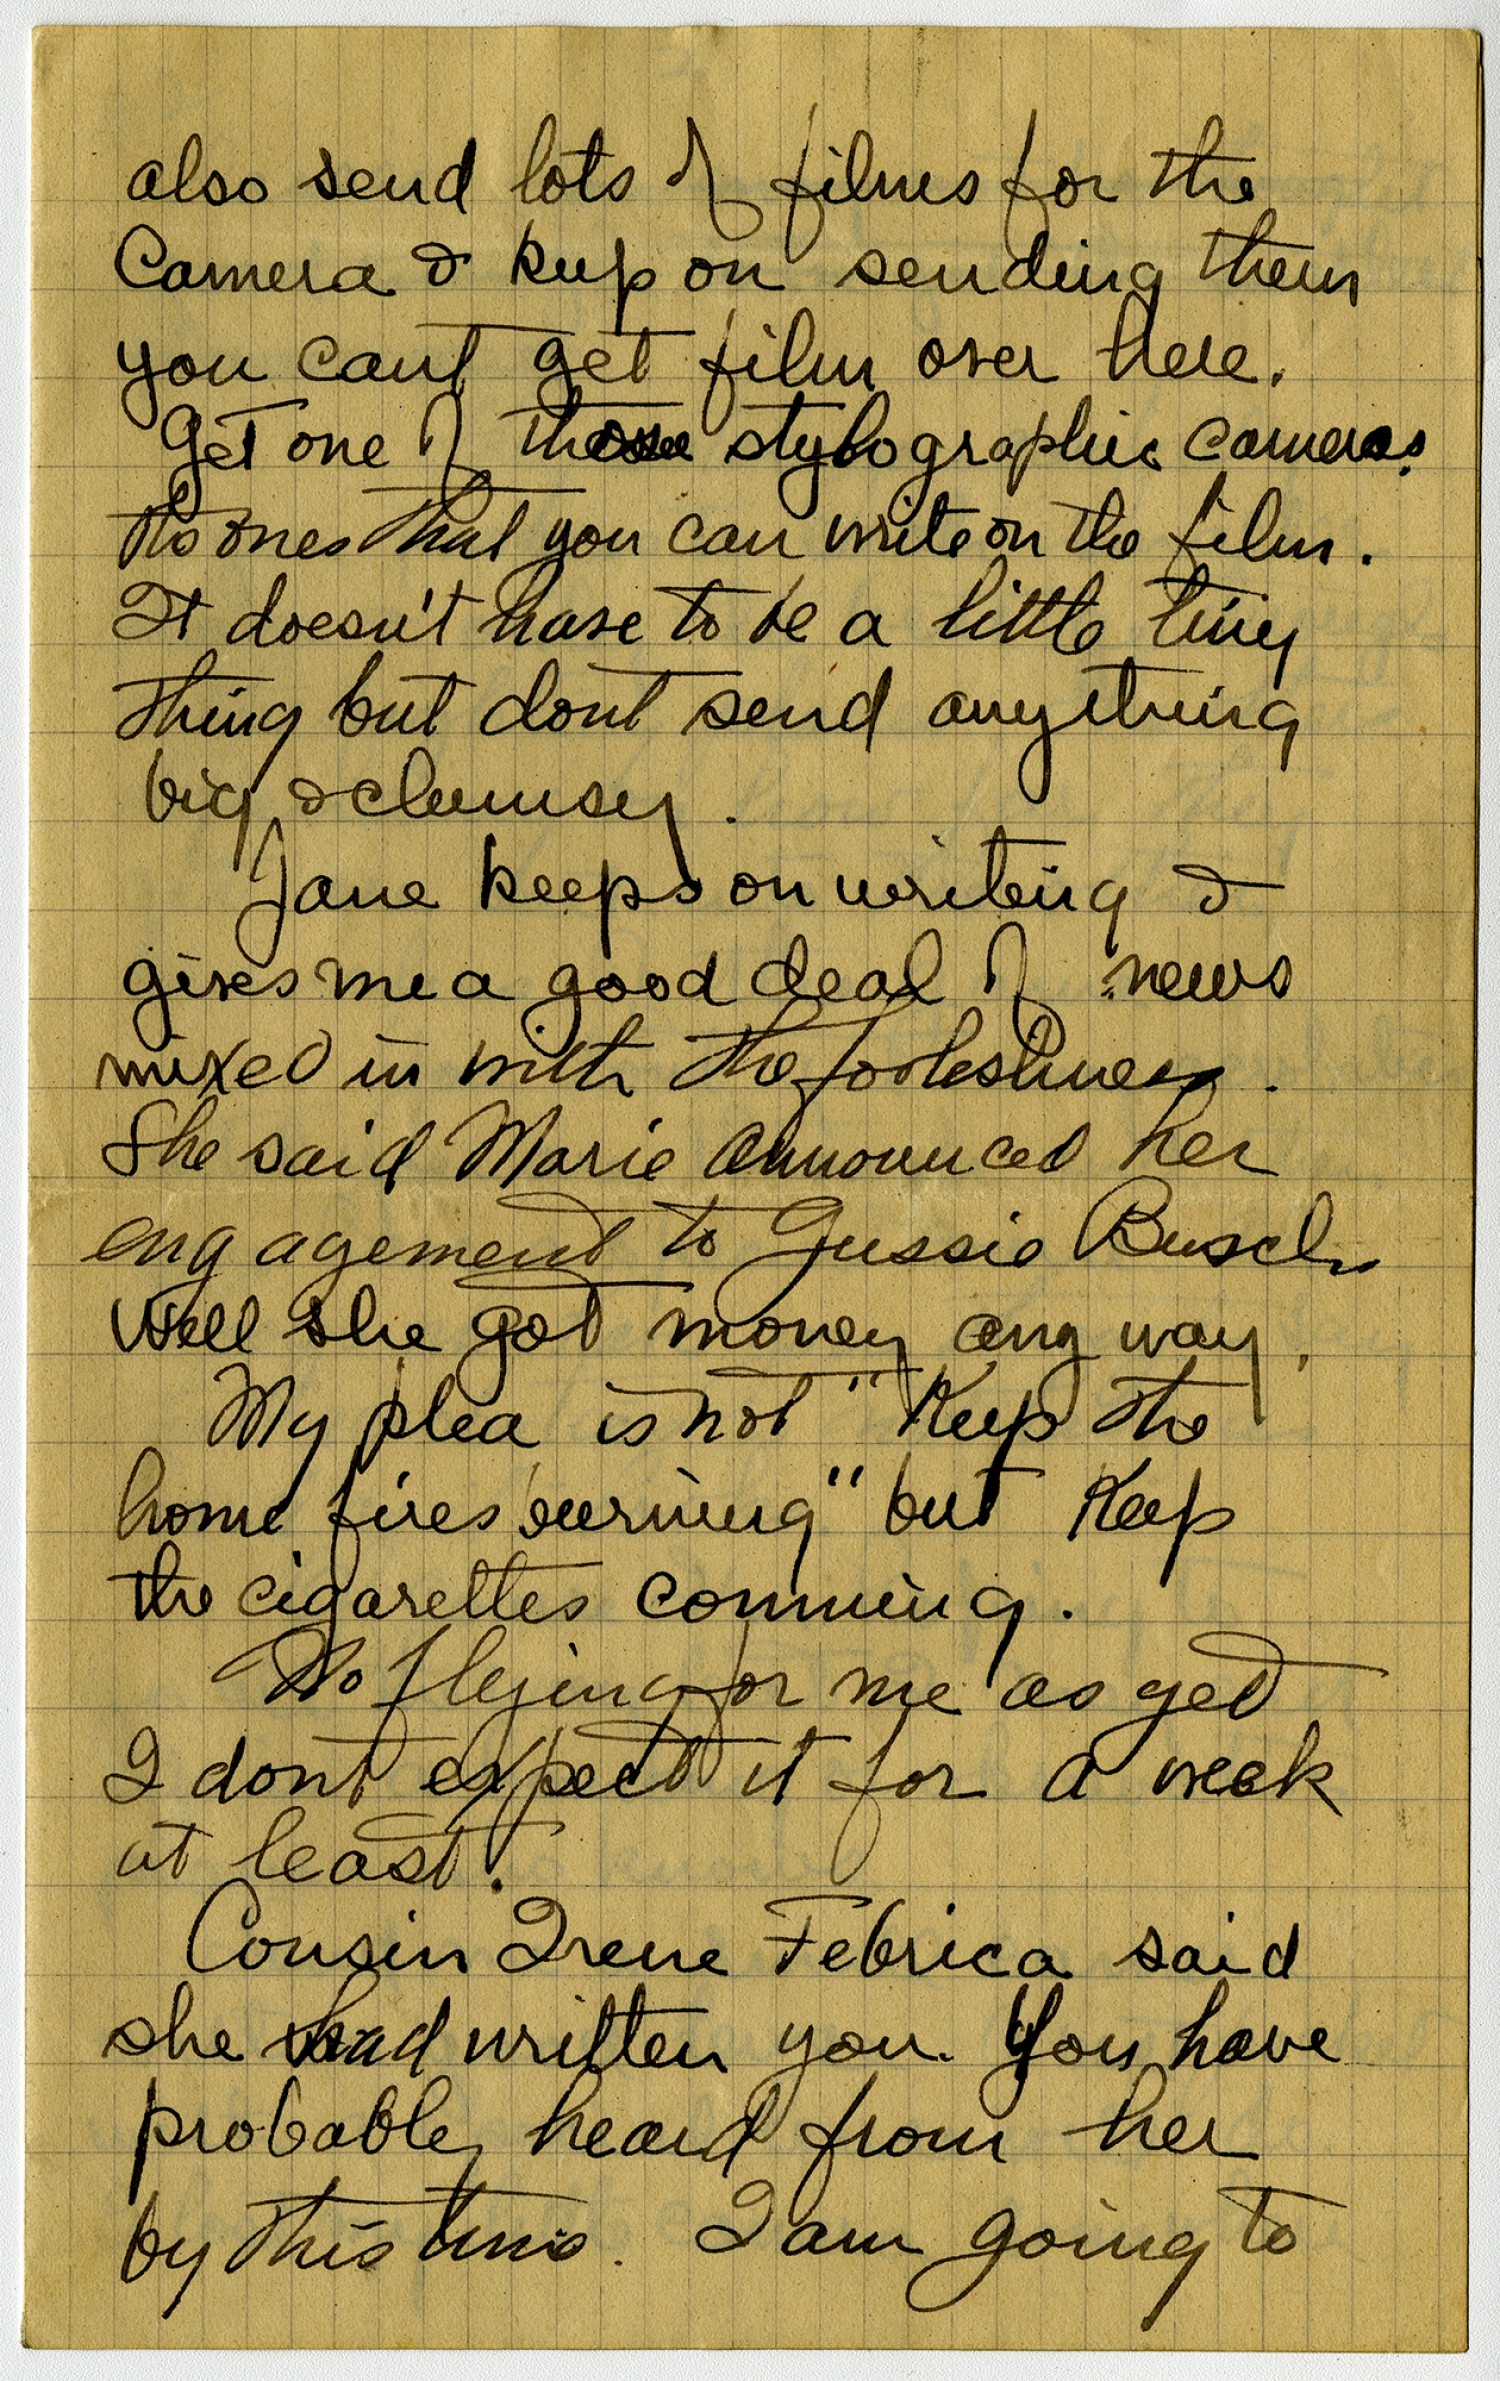 also send lots of films for the
Camera & keep on sending them
you cant get film over here.
Get one of those stylographic cameras
the ones that you can write on the film.
It doesn't have to be a little tiny
thing but dont send anything
big & clumsey.
Jane keeps on writing &
gives me a good deal of news
mixed in with the foolishness.
She said Marie announced her
engagement to Gussie Busch
Well she got money any way.
My plea is not "Keep the
home fires burning" but Keep
the cigarettes comming.
No flying for me as yet
I dont expect it for a week
at least.
Cousin Irene Febrica said
she had written you. You have
probably heard from her
by this time. I am going to